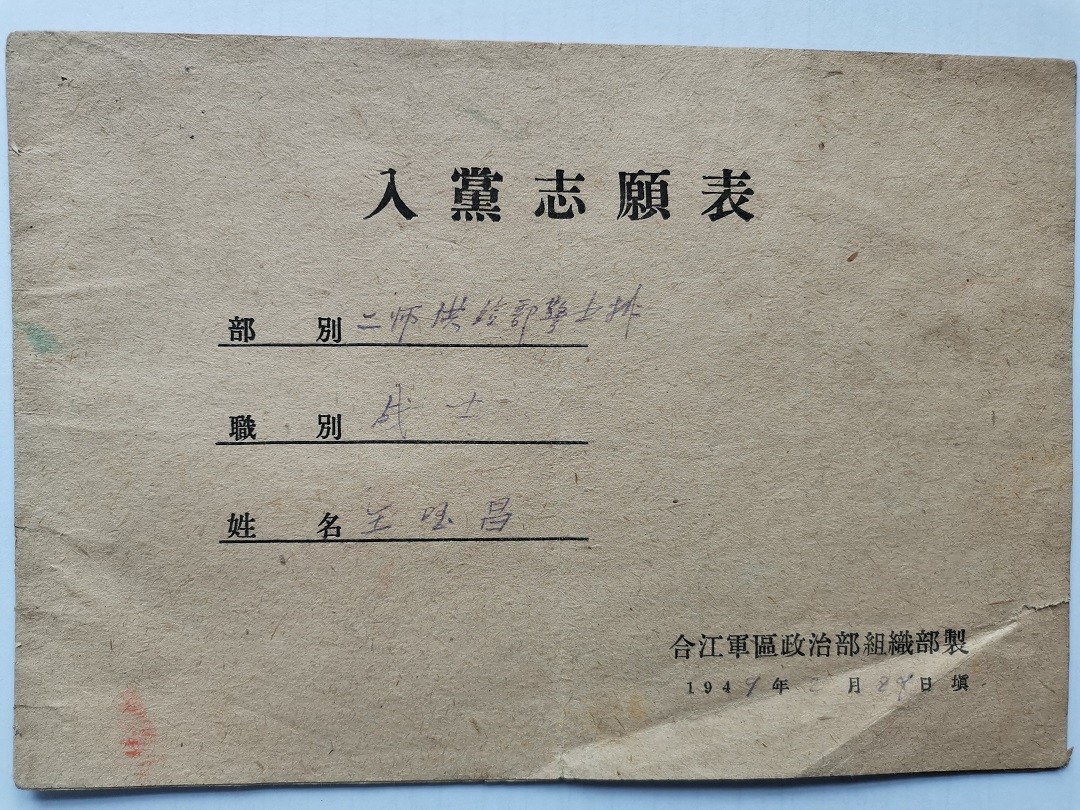 入黨志願表
部別 二师供给部警士排
職別 战士
姓名 王昌
合江軍區政治部組織部製
1949年 月29日填